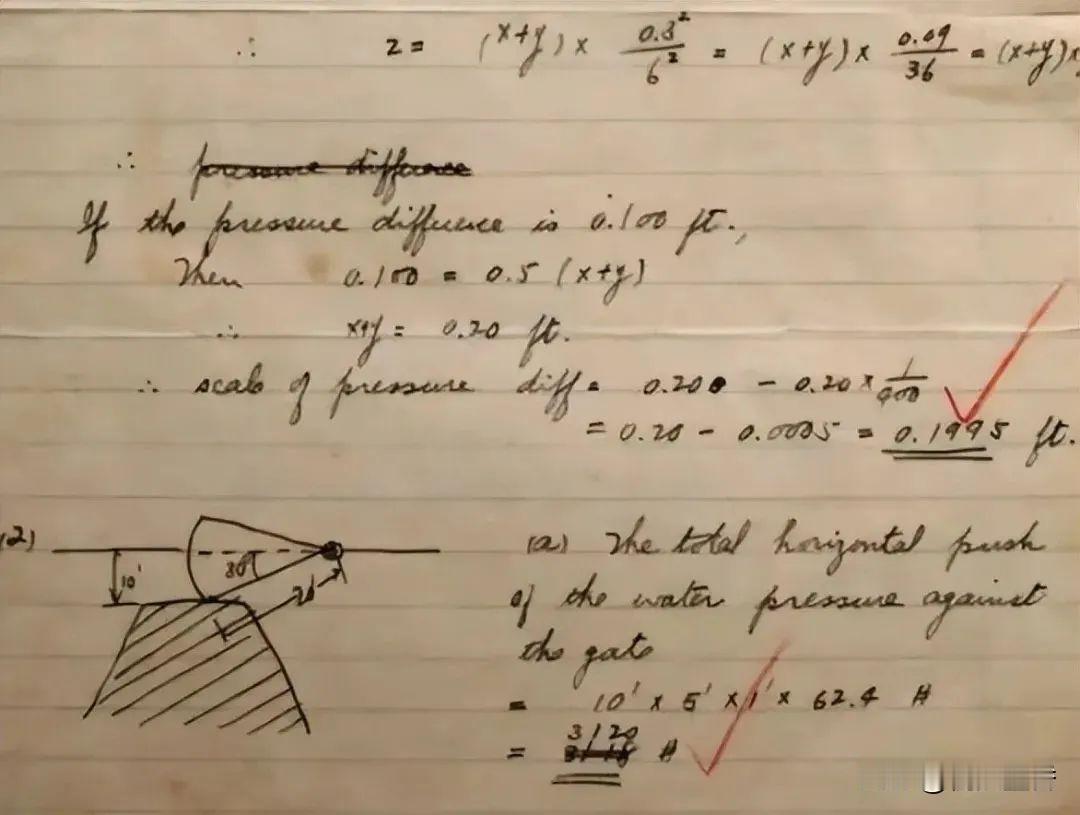 ∴ z = (x+y) × 0.3²/6² = (x+y) × 0.09/36 = (x+y) ×
∴ pressure difference
If the pressure difference is 0.100 ft.,
Then 0.100 = 0.5 (x+y)
∴ x+y = 0.20 ft.
∴ scale of pressure diff = 0.200 - 0.20 × 1/400
= 0.20 - 0.0005 = 0.1995 ft.
(2)
10'
30°
20'
(a) The total horizontal push
of the water pressure against
the gate
= 10' × 5' × 1' × 62.4 #
= 3120 #